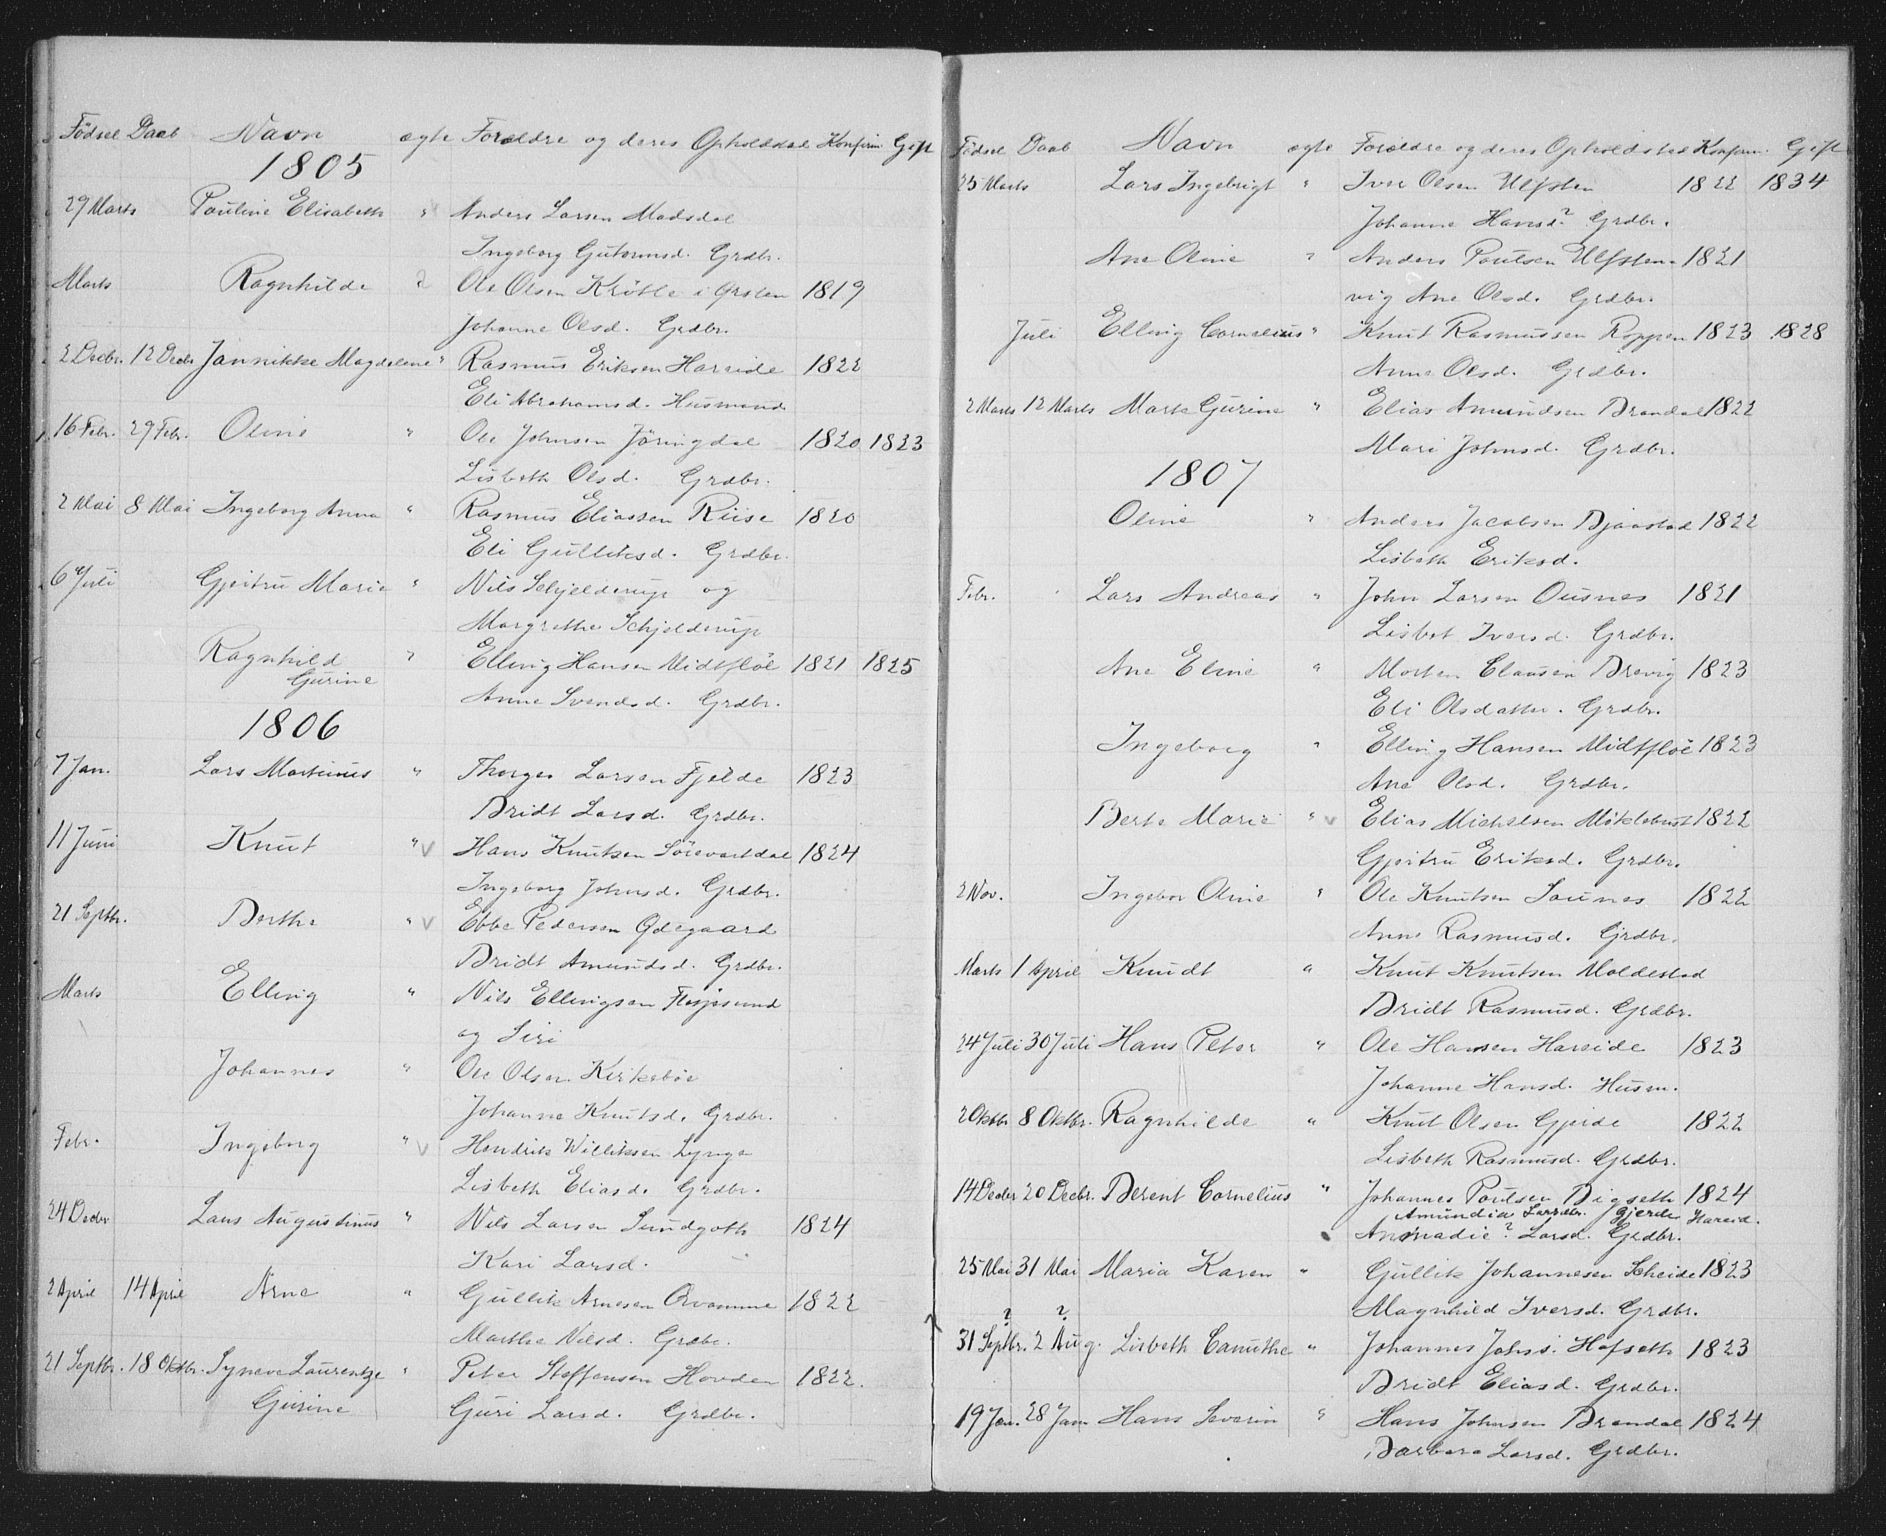 Fødsel Daab Navn ægte Forældre og deres Opholdsst Konfirm. Gift
1805
29 Marts Pauline Elisabeth " Anders Larsen Madsdal
Ingeborg Gutormsd. Grdbr.
Marts Ragnhilde ? Ole Olsen Krøtle i Ørsten 1819
Johanne Olsd. Grdbr.
2 Decbr. 12 Decbr Jannikke Magdalene " Rasmus Eriksen Hareide 1822
Eli Abrahamsd. Husmand
16 Febr. 29 Febr. Oline " Ole Johnsen Jøringdal 1820 1823
Lisbeth Olsd. Grdbr.
2 Mai 8 Mai Ingeborg Anna " Rasmus Eliassen Riise 1820
Eli Gulliksd. Grdbr.
6 Juli Gjertru Marie " Nils Schjelderup og
Margrethe Schjelderup
Ragnhild " Elling Hansen Midtfløe 1821 1825
Gurine
Anne Svendsd. Grdbr.
1806
7 Jan. Lars Martinus " Thorger Larsen Fjelde 1823
Bridt Larsd. Grdbr.
11 Juni Knut " v Hans Knutsen Sørevartdal 1824
Ingeborg Johnsd. Grdbr.
21 Septbr. Berthe " v Ebbe Pedersen Ødegaard
Bridt Amundsd. Grdbr.
Marts Elling " Nils Ellingsen Fløjsund
og Siri
Johannes " Ole Olsen Kirkebøe
Johanne Knutsd. Grdbr.
Febr. Ingeborg " v Hendrik Williksen Lynge
Lisbeth Eliasd. Grdbr.
24 Decbr Lars Augustinus " Nils Larsen Sundgoth 1824
Kari Larsd.
2 April 14 April Arne " Gullik Arnesen Overamme 1822
Marthe Nilsd. Grdbr.
21 Septbr. 18 Oktbr. Syneve Laurentze " Peter Steffensen Hovden 1822.
Gurine Guri Larsd. Grdbr.
Fødsel Daab Navn ægte Forældre og deres Opholdsted Konfirm. Gift
25 Marts Lars Ingebrigt " Iver Olsen Ulfsten 1822 1834
Johanne Hansd? Grdbr.
Ane Oline " Anders Poulsen Ulfsten- 1821
vig Ane Olsd. Grdbr.
Juli Elling Cornelius " Knut Rasmussen Roppen 1823 1828
Anne Olsd. Grdbr.
2 Marts 12 Marts Marte Gurine " Elias Amundsen Brandal 1822
Mari Johnsd. Grdbr.
1807
Oline " Anders Jacobsen Bjaastad 1822
Lisbeth Eriksd.
Febr. Lars Andreas " John Larsen Ousnes 1821
Lisbet Iversd. Grdbr.
Ane Eline " Morten Clausen Brevig 1823
Eli Olsdatter. Grdbr.
Ingeborg " Elling Hansen Midtfløe 1823
Ane Olsd. Grdbr.
Berte Marie " v Elias Michelsen Møklebust 1822
Gjertru Eriksd. Grdbr.
2 Nov. Ingebor Oline " Ole Knutsen Saunes 1822
Anne Rasmusd. Grdbr.
Marts 1 April Knudt " Knut Knutsen Moldestad
Bridt Rasmusd. Grdbr.
24 Juli 30 Juli Hans Peter " Ole Hansen Hareide 1823
Johanne Hansd. Husm.
2 Oktbr 8 Oktbr. Ragnhilde " Knut Olsen Gjerde 1822
Lisbeth Rasmusd. Grdbr.
14 Decbr 20 Decbr. Berent Cornelius " Johannes Poulsen Bigseth 1824
Amundia Larsdtr. / Gjerde, Hareid.
Anmadie? Larsd. Grdbr.
25 Mai 31 Mai Maria Karen " Gullik Johannesen Scheide 1823
Magnhild Iversd. Grdbr.
? ?
31 Septbr. 2 Aug. Lisbeth Canuthe " Johannes Johns. Hofseth 1823
Bridt Eliasd. Grdbr.
19 Jan. 28 Jan Hans Severin " Hans Johnsen Brandal 1824
Barbara Larsd. Grdbr.